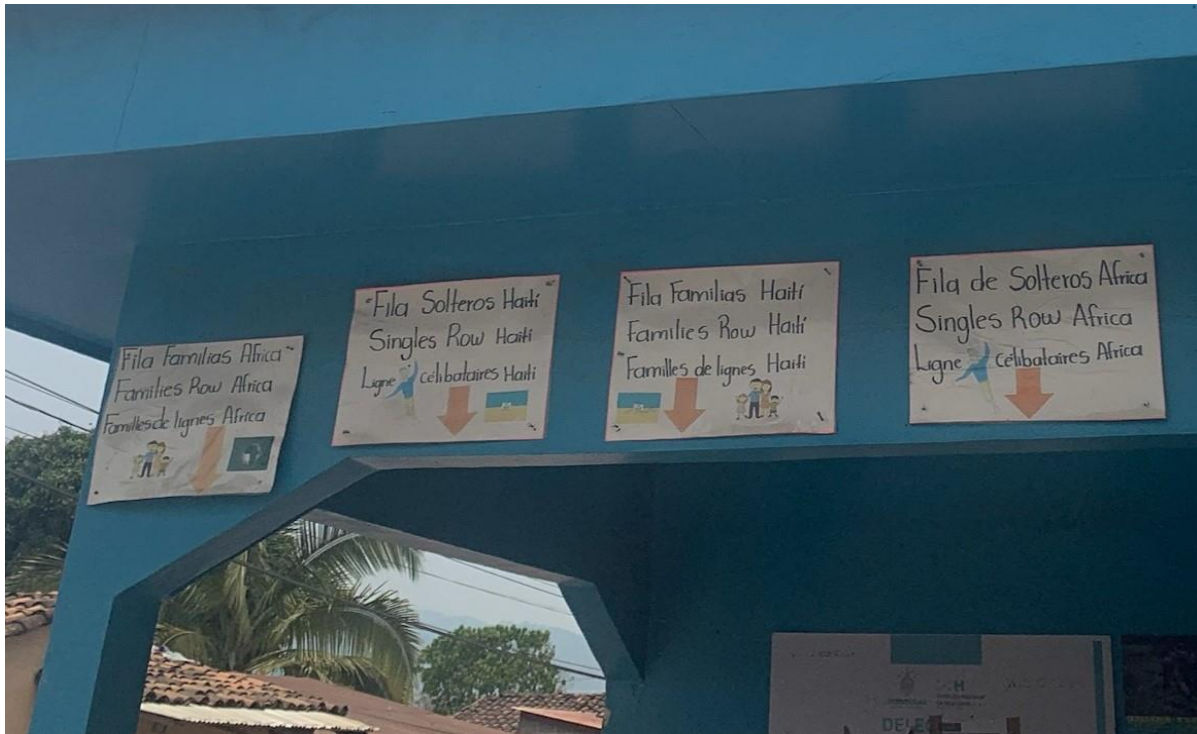 Fila Familias Africa
Families Row Africa
Familles de lignes Africa
Fila Solteros Haití
Singles Row Haiti
Ligne célibataires Haiti
Fila Familias Haití
Families Row Haití
Familles de lignes Haiti
Fila de Solteros Africa
Singles Row Africa
Ligne célibataires Africa